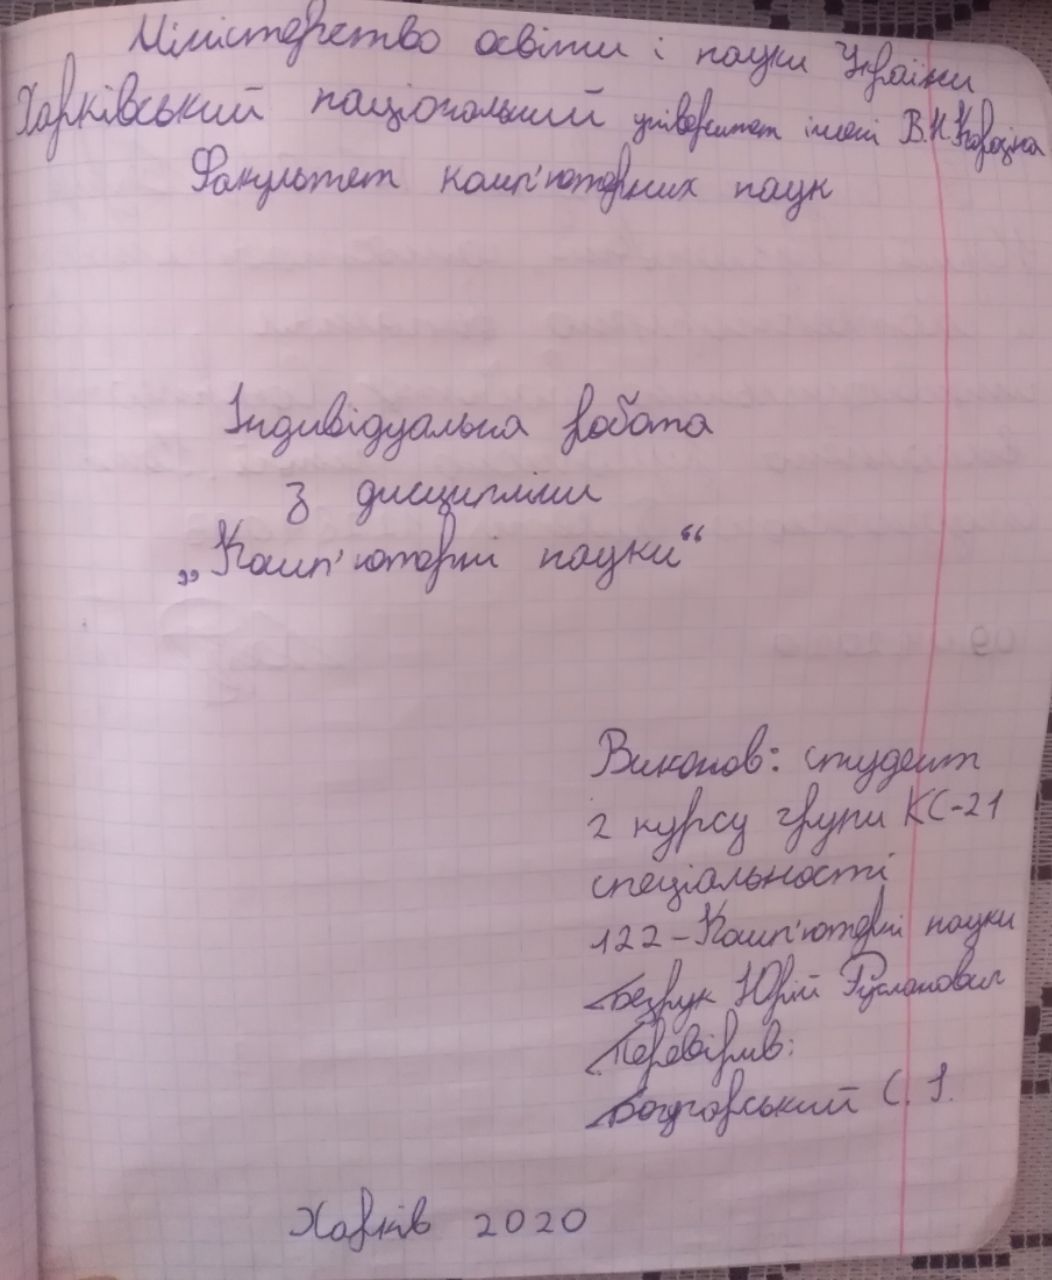 Міністерство освіти і науки України
Харківський національний університет імені В.Н.Каразіна
Факультет комп'ютерних наук
Індивідуальна робота
з дисципліни
„Комп'ютерні науки“
Виконав: студент
2 курсу групи КС-21
спеціальності
122-Комп'ютерні науки
Безрук Юрій Русланович
Перевірив:
С. І.
Харків 2020